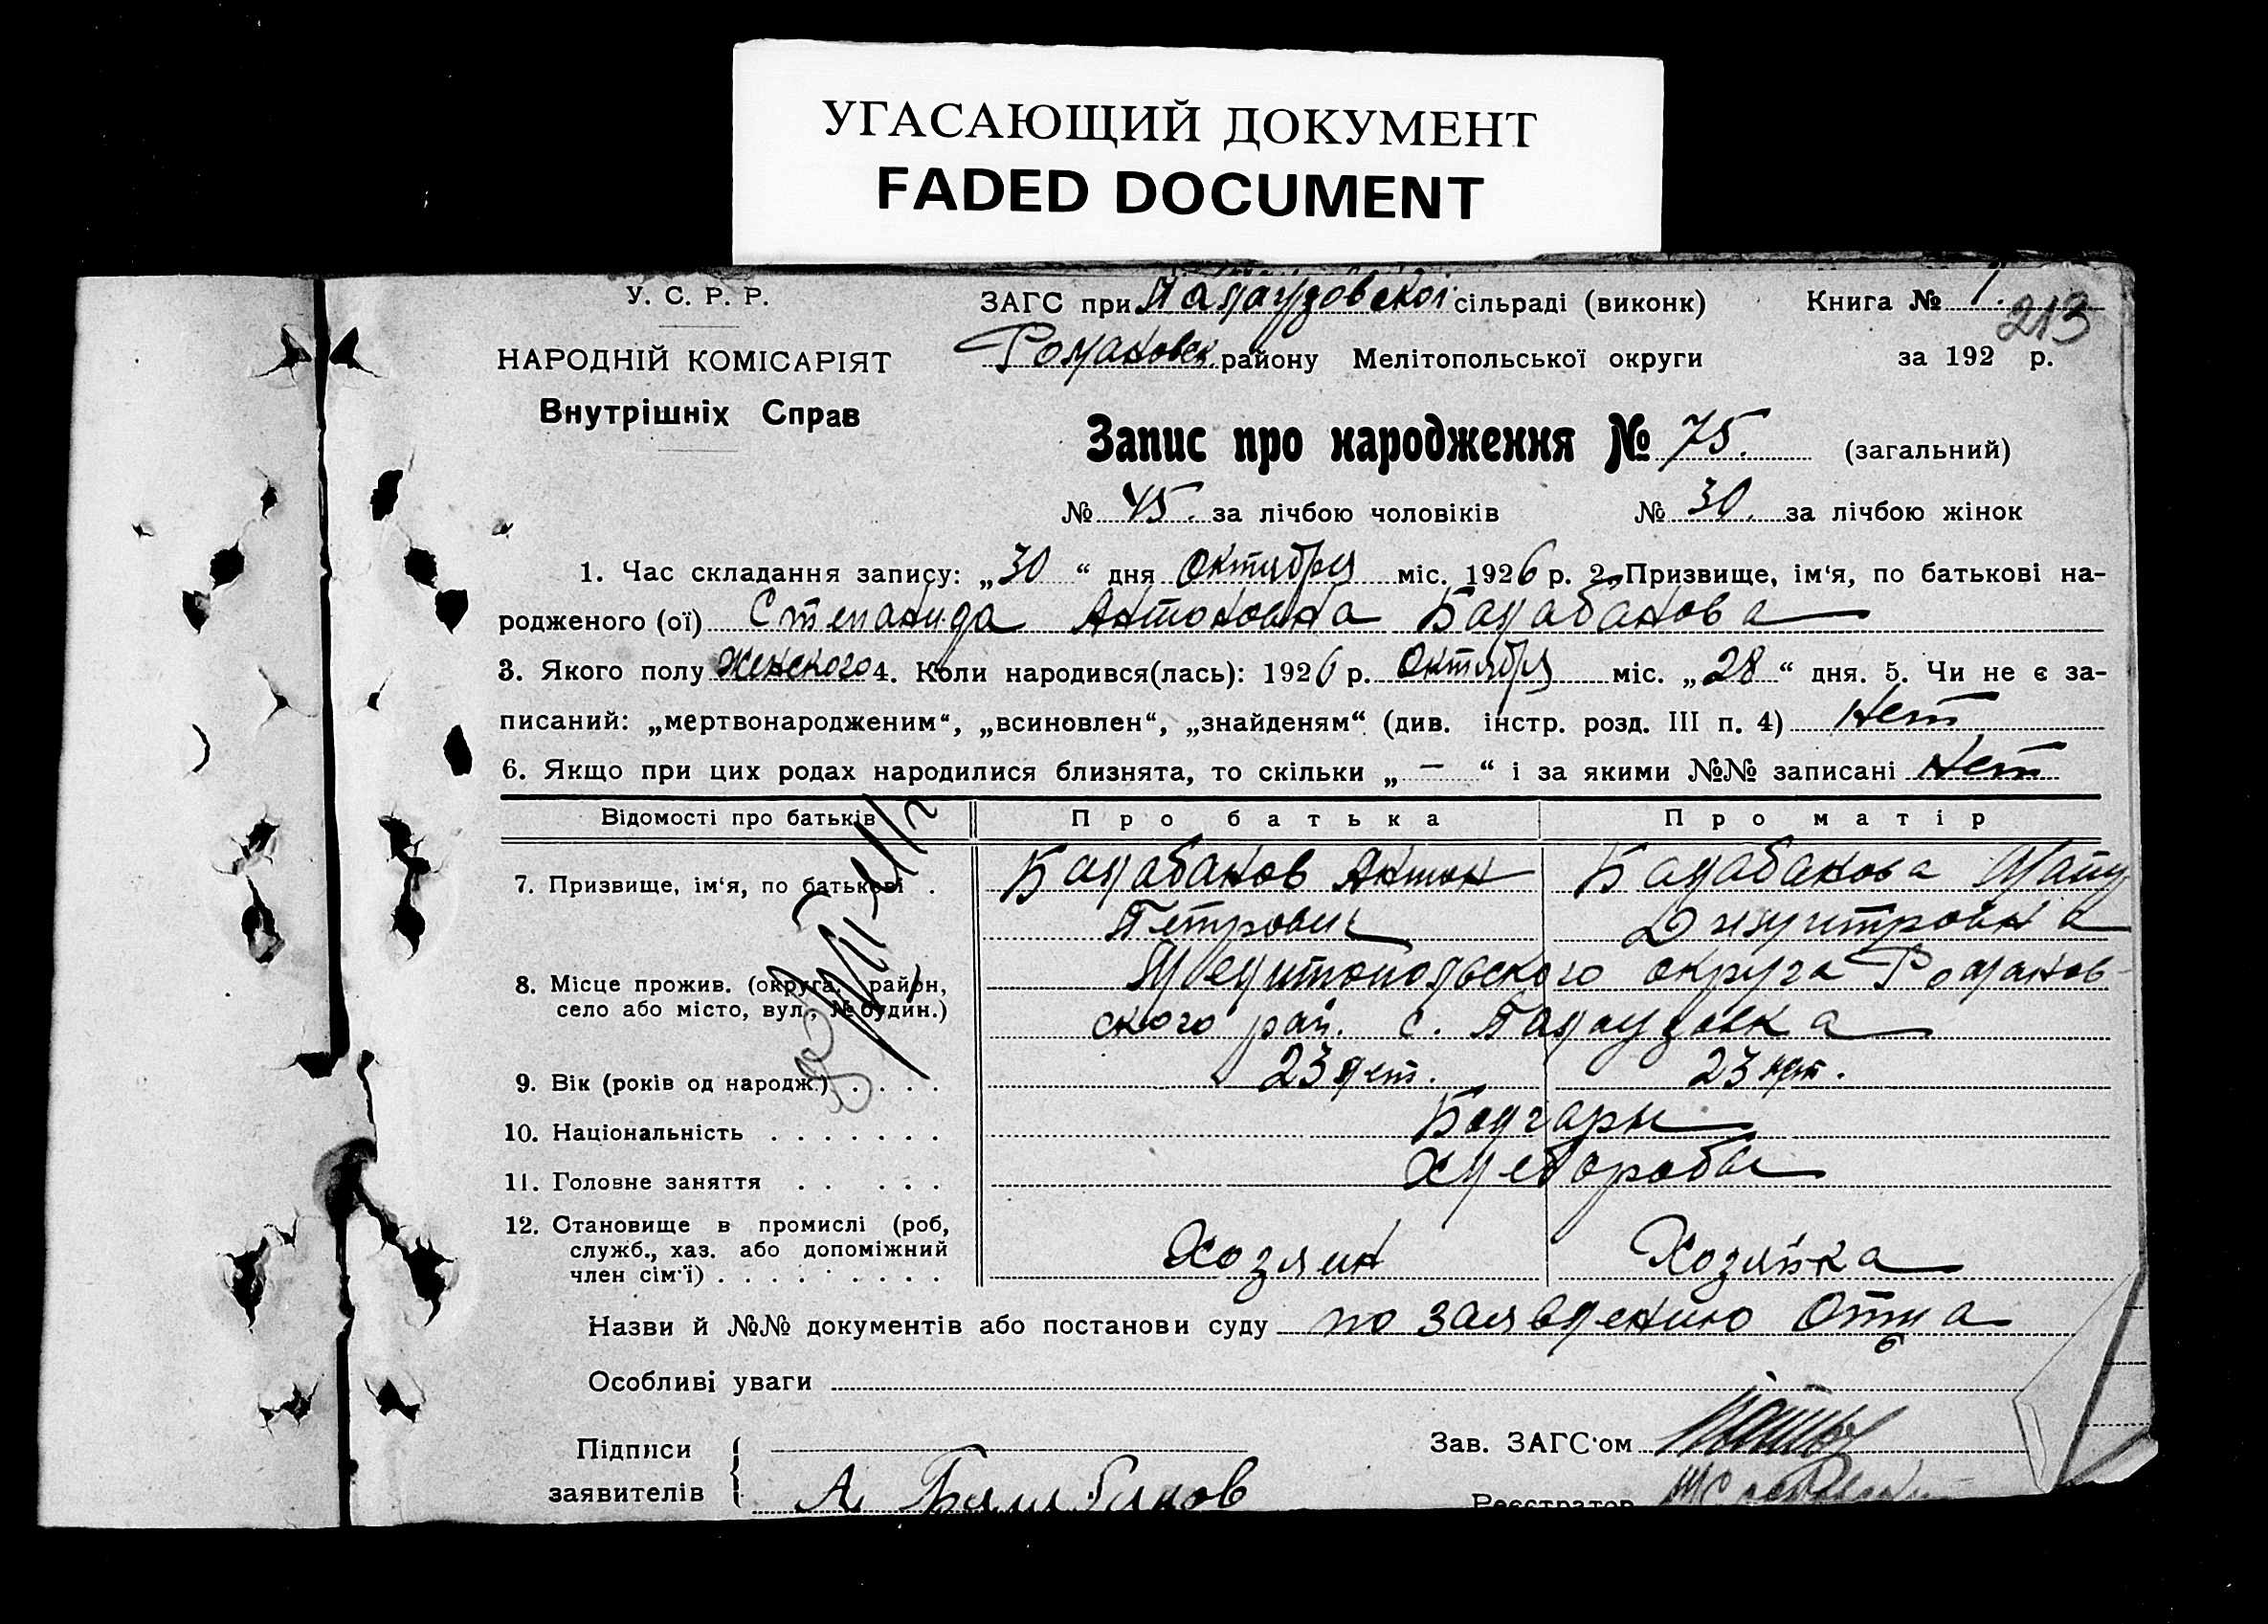 УГАСАЮЩИЙ ДОКУМЕНТ
FADED DOCUMENT
У. С. Р. Р.
НАРОДНІЙ КОМІСАРІЯТ
Внутрішніх Справ
ЗАГС при Палаузовской сільраді (виконк) Книга № 1.
213
Романовск. району Мелітопольської округи за 192 р.
Запис про народження № 75. (загальний)
№ 45. за лічбою чоловіків № 30. за лічбою жінок
1. Час складання запису: „30“ дня Октября міс. 1926 р. 2. Призвище, ім‘я, по батькові на-
родженого (ої) Степанида Антоновна Балабанова
3. Якого полу Женского 4. Коли народився(лась): 1926 р. Октября міс. „28“ дня. 5. Чи не є за-
писаний: „мертвонародженим“, „всиновлен“, „знайденям“ (див. інстр. розд. III п. 4) Нет
6. Якщо при цих родах народилися близнята, то скільки „ — “ і за якими №№ записані Нет
Відомості про батьків Про батька Про матір
7. Призвище, ім‘я, по батькові . Балабанов Антон Балабанова
Петрович Дмитровна
8. Місце прожив. (округа, район, Мелитопольского округа Романов-
село або місто, вул., № будин.) ского рай. с. Палаузовка
9. Вік (років од народж.) . . . . 23 лет. 23 лет.
10. Національність . . . . . . . Болгары
11. Головне заняття . . . . . Хлеборобы
12. Становище в промислі (роб,
служб., хаз. або допоміжний Хозяин Хозяйка
член сім‘ї) . . . . . . . . .
Назви й №№ документів або постанови суду по заявлению Отца
Особливі уваги
Підписи Зав. ЗАГС‘ом
заявителів А. Балабанов Реєстратор